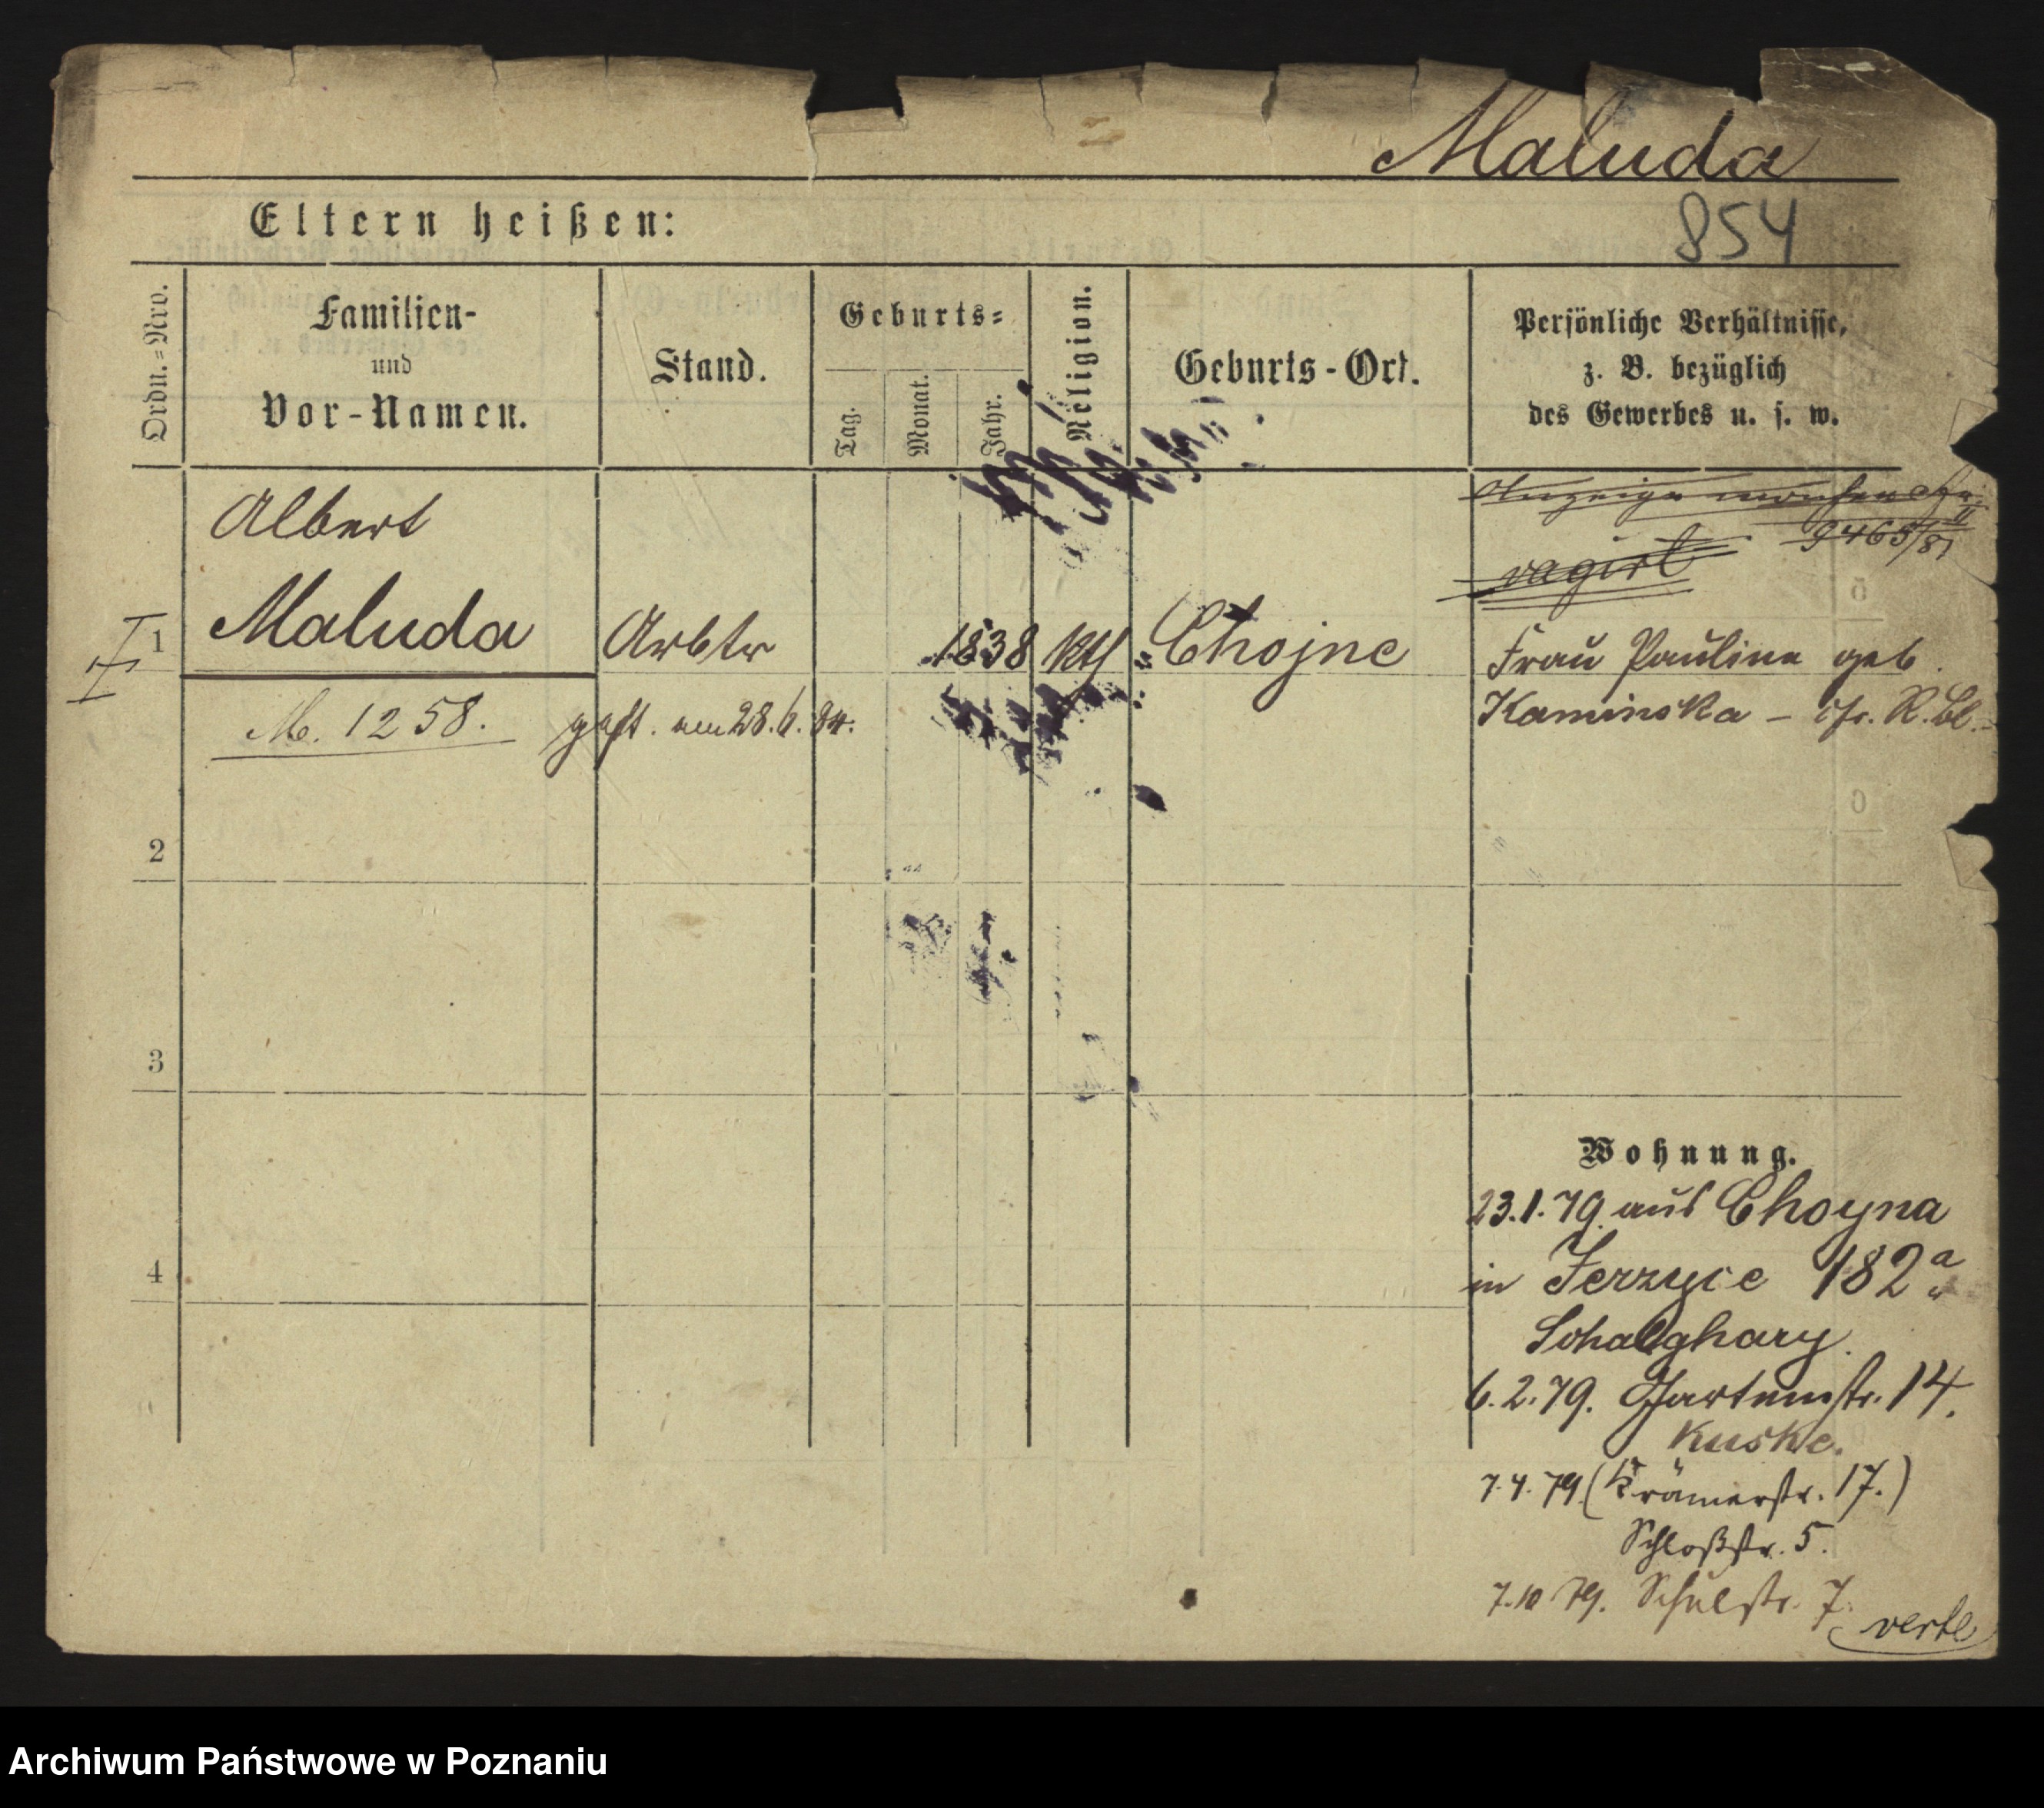 Maluda
854
Eltern heißen:
Ordn.=Nro.
Familien-
und
Vor-Namen.
Stand.
Geburts=
Tag.
Monat.
Jahr.
Religion.
Geburts-Ort.
Persönliche Verhältnisse,
z. B. bezüglich
des Gewerbes u. s. w.
Anzeige
9465/81
vagirt
Albert
1 Maluda Arbtr 1838 kth Chojne
Frau Pauline geb.
Kaminska – R. Bl.
M. 1258. gest. am 28.6.84.
2
3
4
Wohnung.
23.1.79. aus Choyna
in Jerzyce 182a
6.2.79. Gartenstr. 14.
Kuske.
7.4.79. (Krämerstr. 17.)
Schloßstr. 5.
7.10.79. Schulstr. 7.
verte
Archiwum Państwowe w Poznaniu